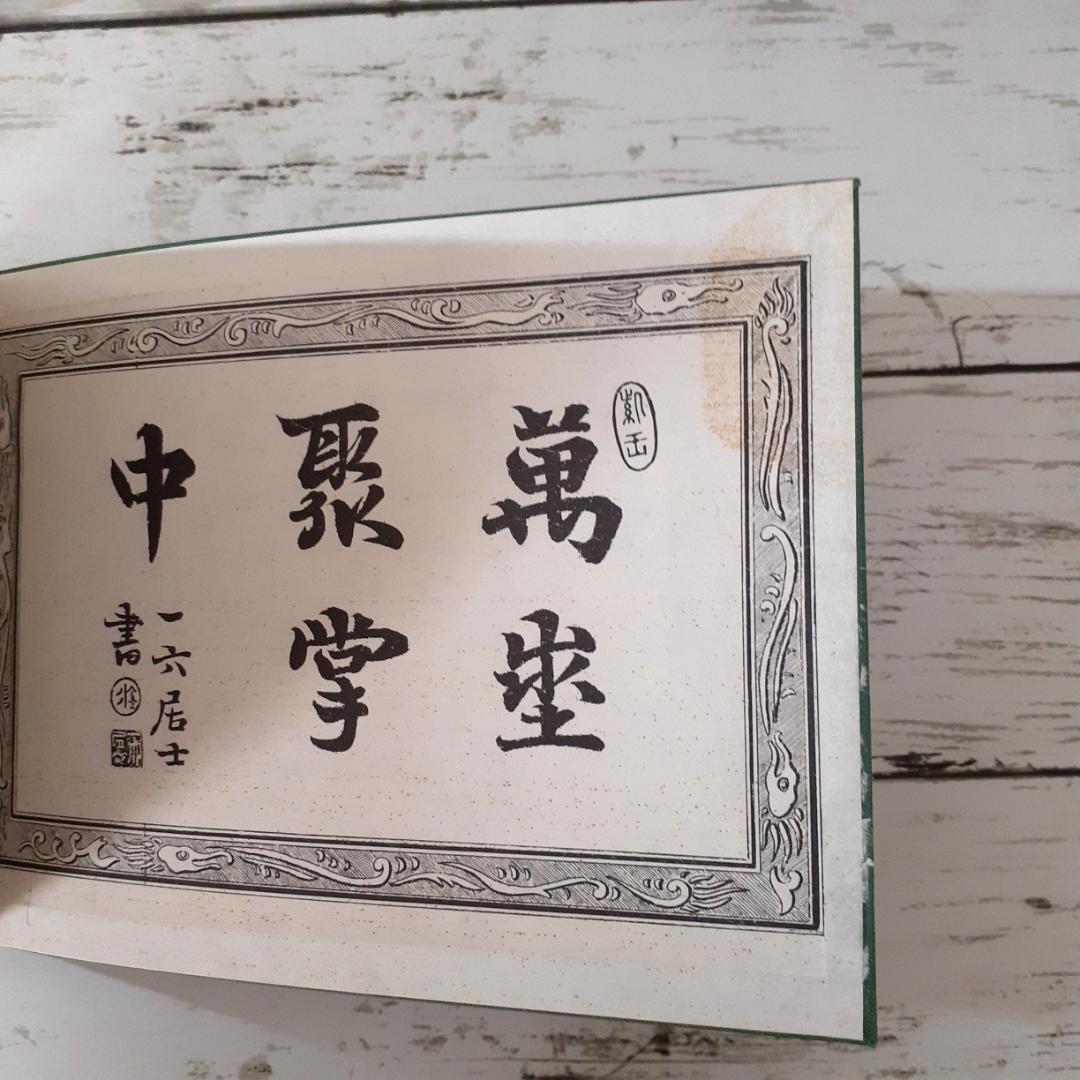 萬
聚掌
中
一六居士
書